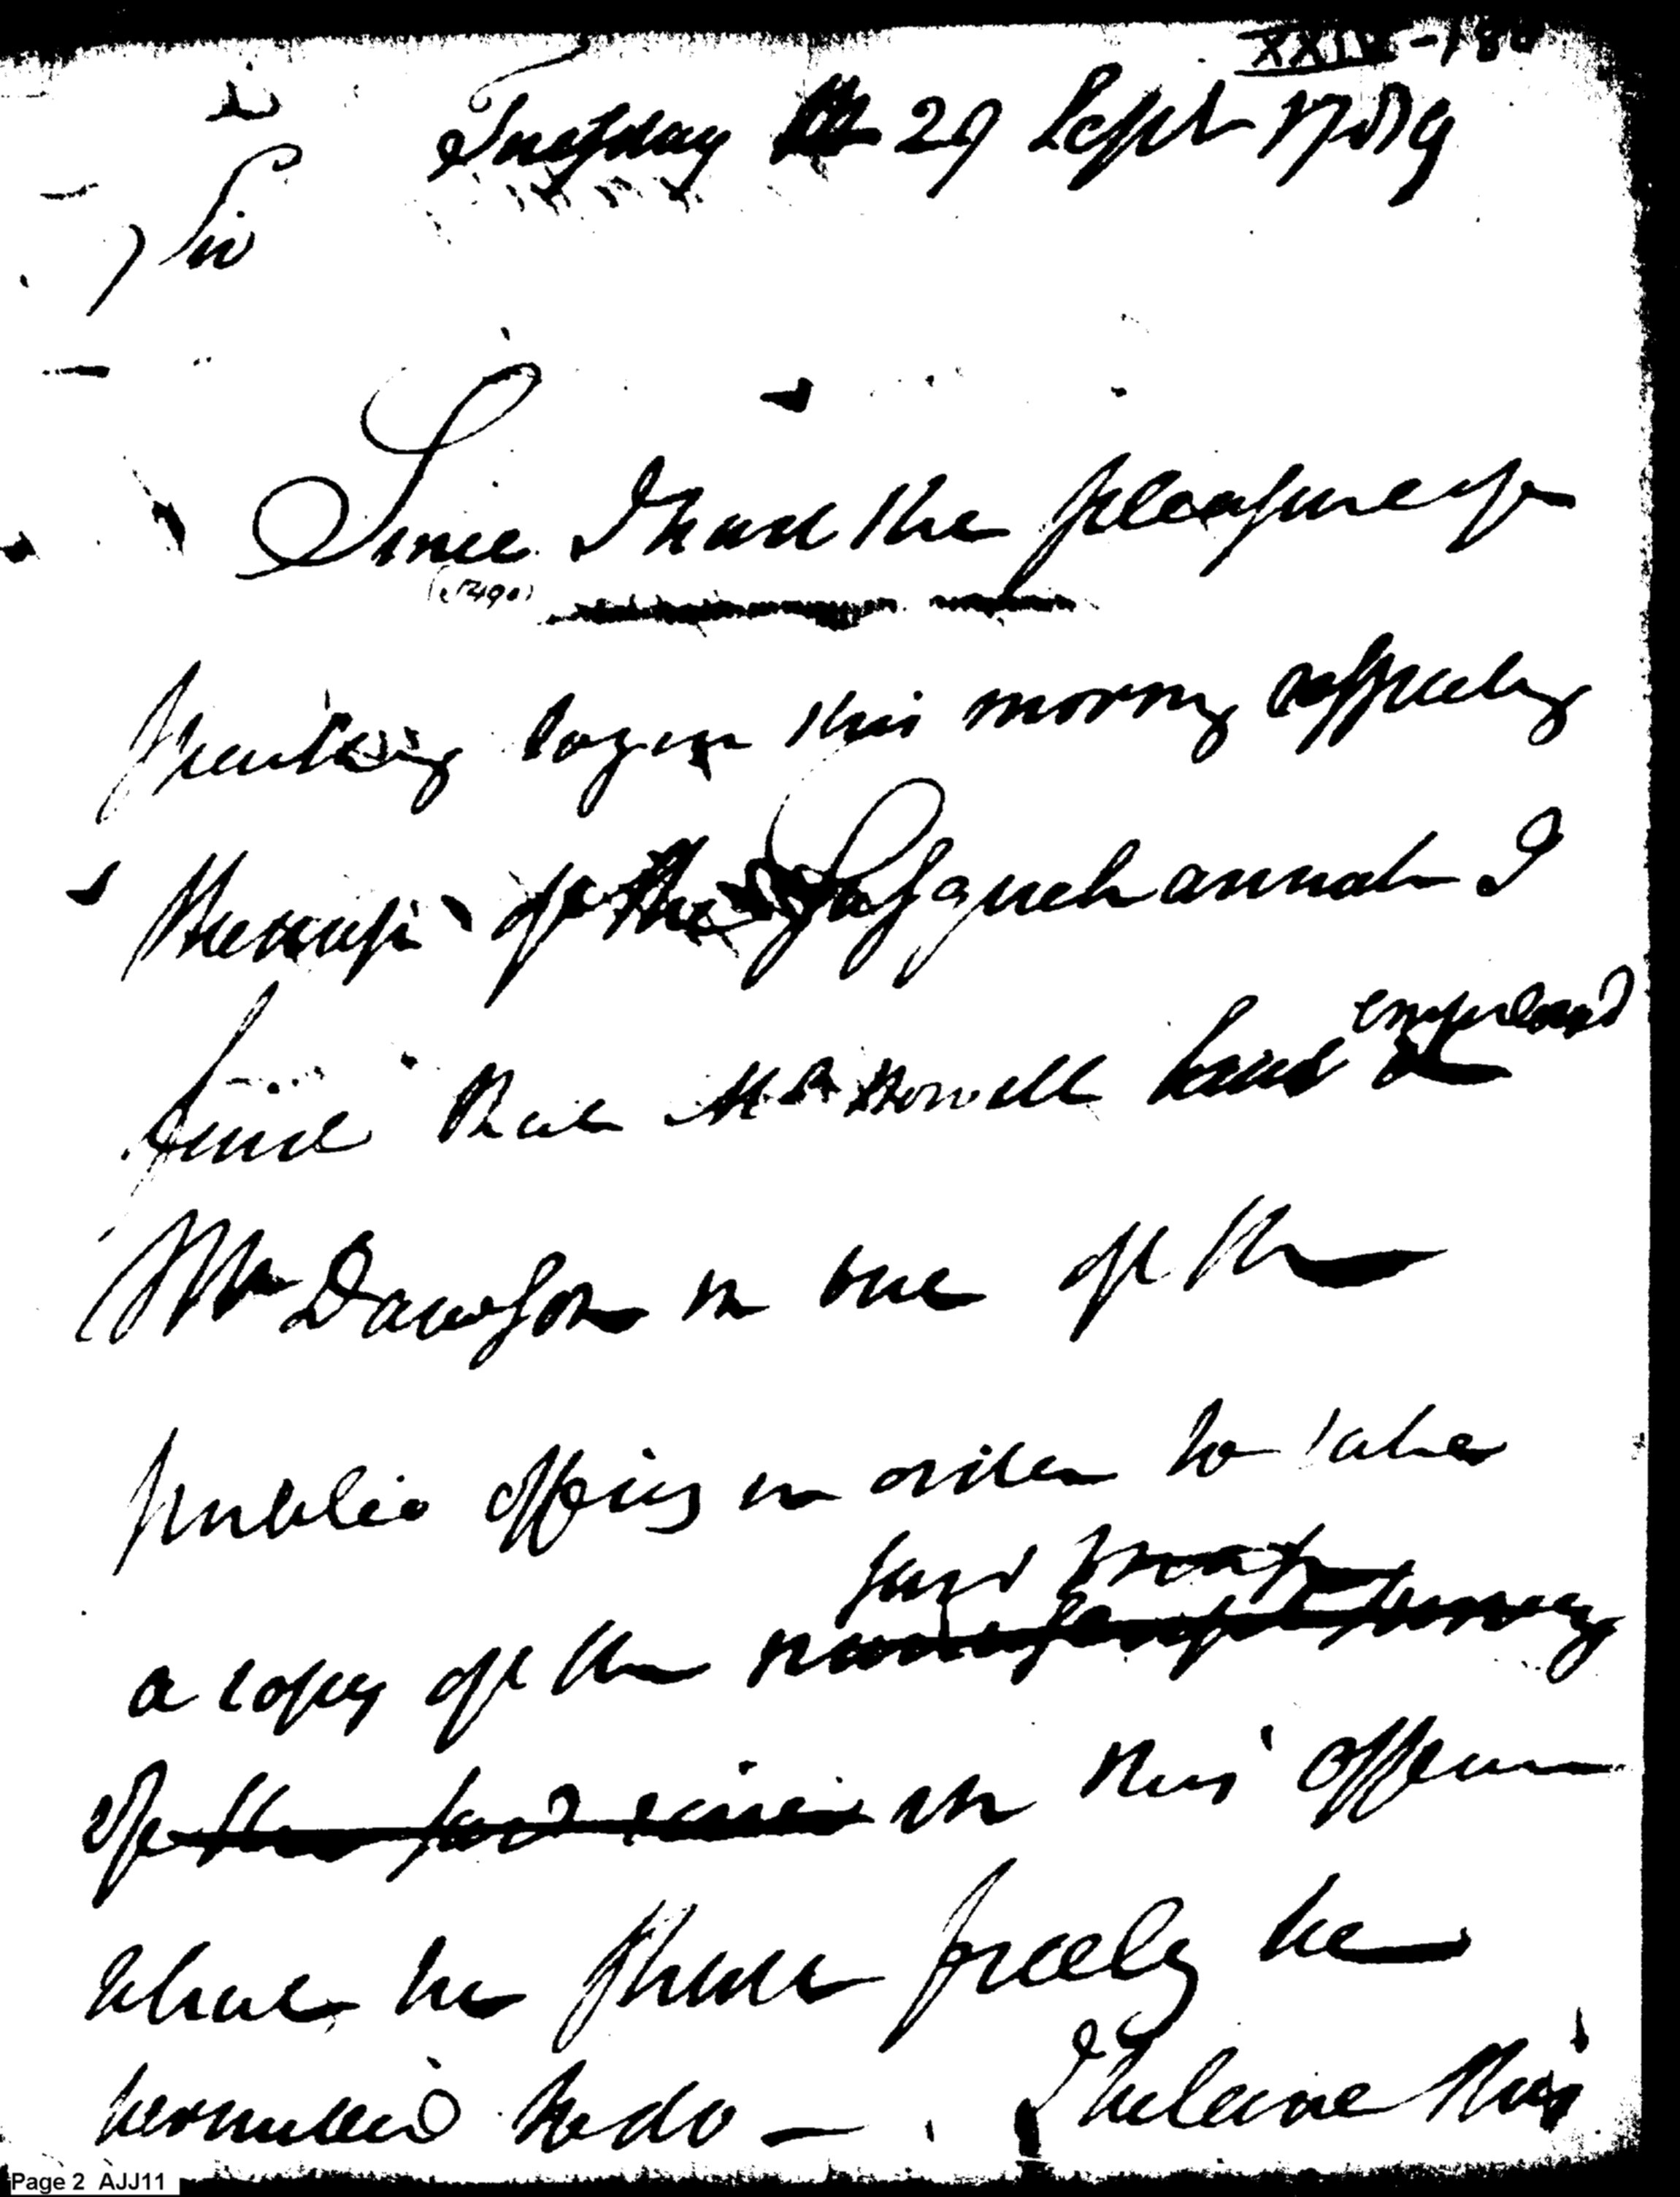 Tuesday 29 Sept 1789
Sir
Since I had the pleasure of
speaking to you this morng respectng
the maps of the Susquehannah I
find that Mr Howell had employed
Mr Dawson in one of the
public offices in order to take
a copy of the
said
of the in this office
what he shall freely be
permitted to do — I believe this
Page 2 AJJ11